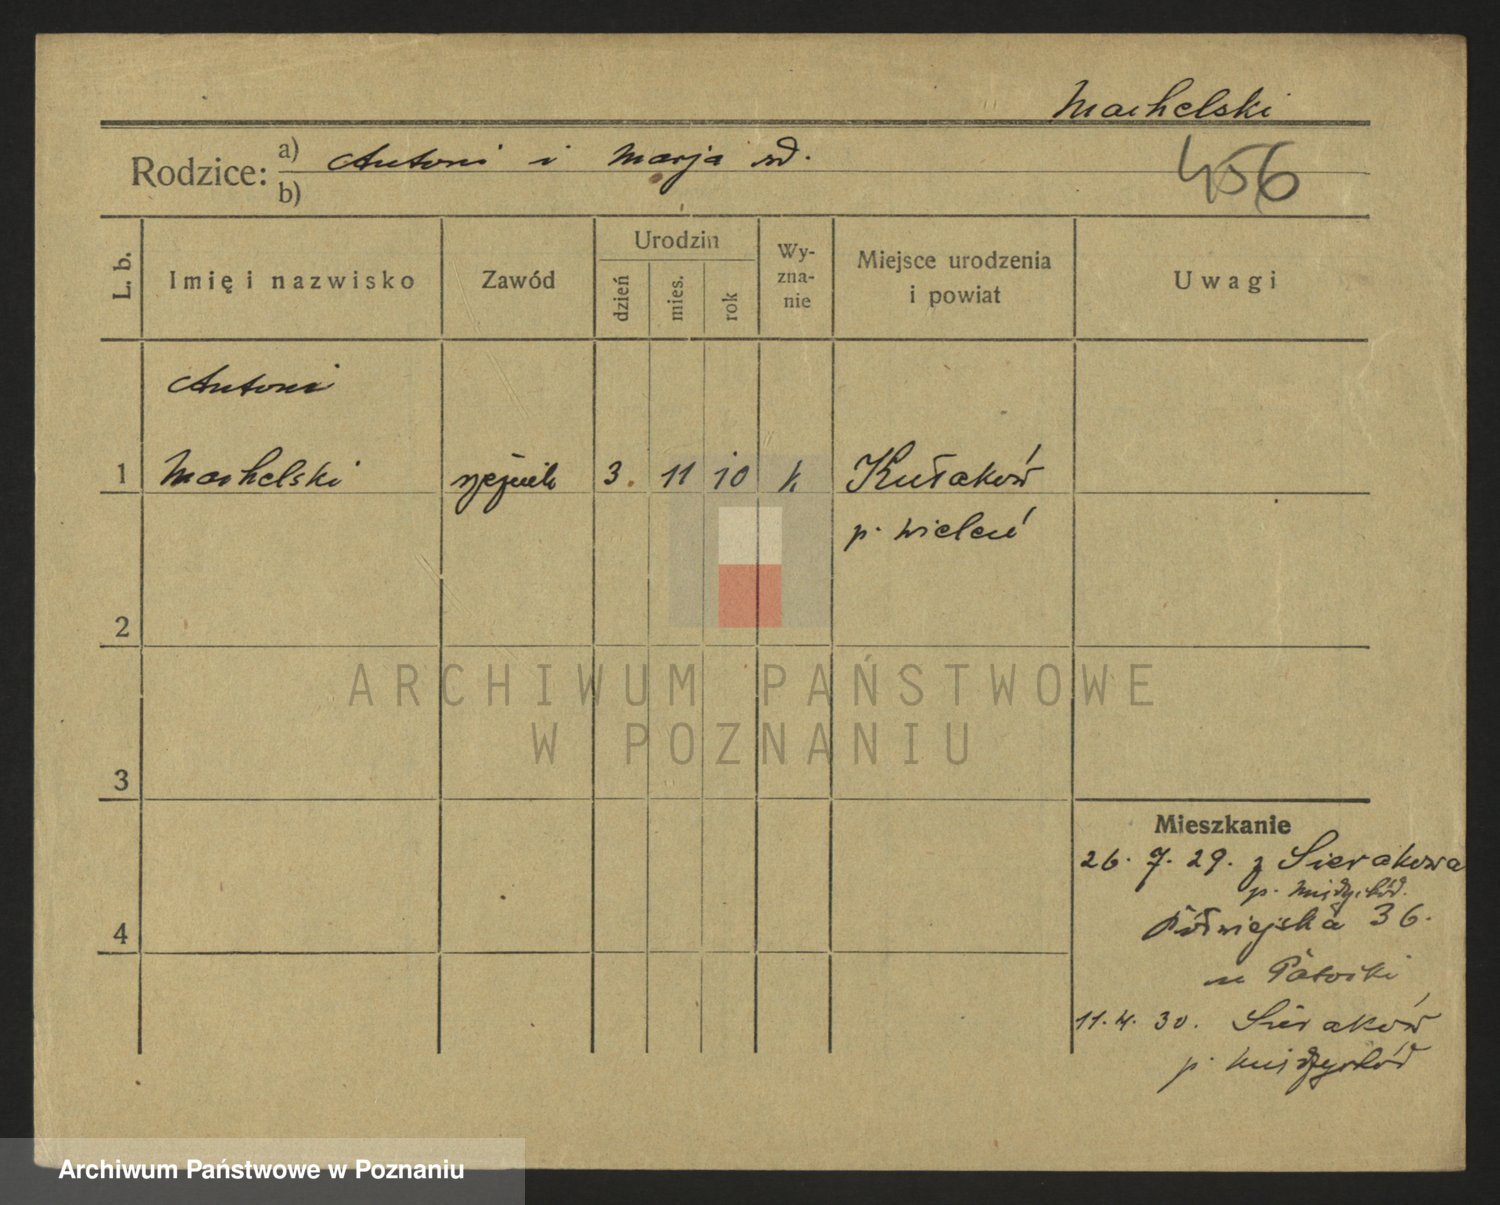 Machelski
Rodzice: a) Antoni i Marja
456
b)
L. b.
Imię i nazwisko
Zawód
Urodzin
dzień
mies.
rok
Wy-
zna-
nie
Miejsce urodzenia
i powiat
Uwagi
Antoni
1 Machelski 3. 11 10 k
p. Wieleń
2
3
4
Mieszkanie
26. 7. 29. z Sierakowa
p. Międzychód.
Półwiejska 36.
11. 4. 30. Sieraków
p. Międzychód
ARCHIWUM PAŃSTWOWE
W POZNANIU
Archiwum Państwowe w Poznaniu